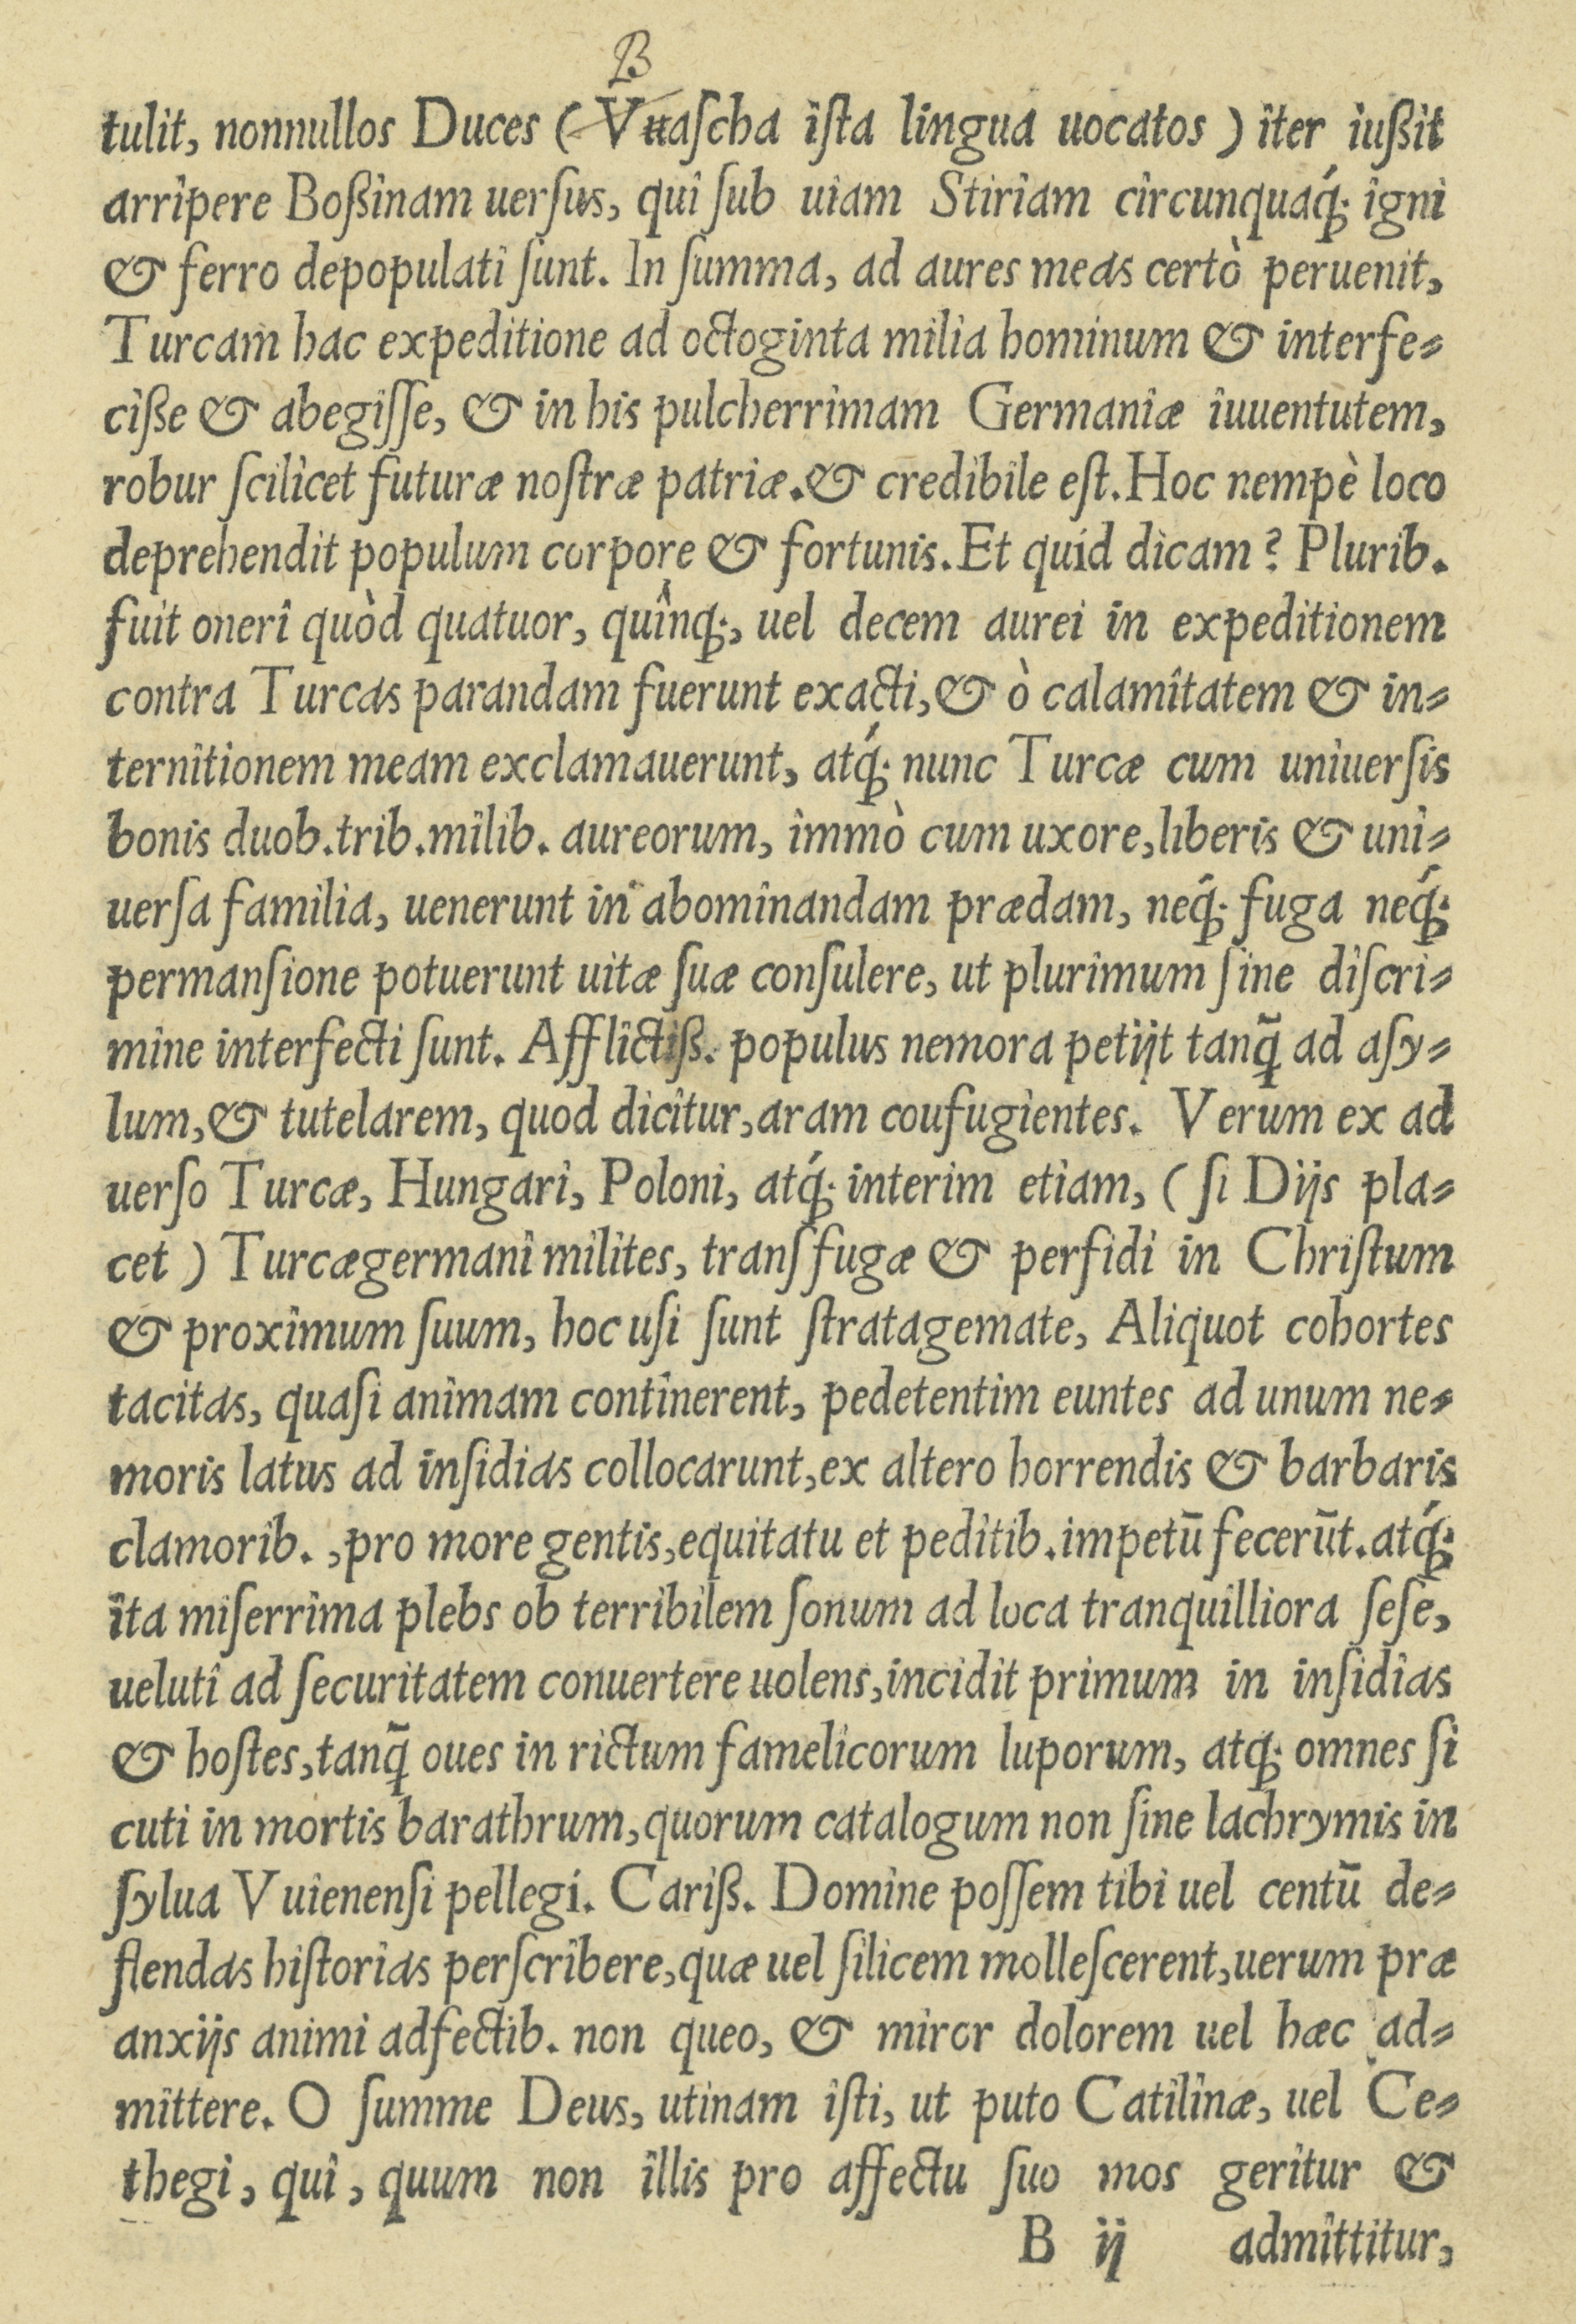 B
tulit, nonnullos Duces ( Vuaſcha iſta lingua uocatos ) iter iußit
arripere Boßinam uerſus, qui ſub uiam Stiriam circunquaq́; igni
& ferro depopulati ſunt. In ſumma, ad aures meas certò peruenit,
Turcam hac expeditione ad octoginta milia hominum & interfe⸗
ciße & abegiſſe, & in his pulcherrimam Germaniæ iuuentutem,
robur ſcilicet futuræ noſtræ patriæ.& credibile eſt.Hoc nempè loco
deprehendit populum corpore & fortunis.Et quid dicam? Plurib.
fuit oneri quòd quatuor, quinq́;, uel decem aurei in expeditionem
contra Turcas parandam fuerunt exacti,& ò calamitatem & in⸗
ternitionem meam exclamauerunt, atq́; nunc Turcæ cum uniuerſis
bonis duob.trib.milib. aureorum, immò cum uxore,liberis & uni⸗
uerſa familia, uenerunt in abominandam prædam, neq́; fuga neq́;
permanſione potuerunt uitæ ſuæ conſulere, ut plurimum ſine diſcri⸗
mine interfecti ſunt. Afflictiß. populus nemora petijt tanq̃ ad aſy⸗
lum,& tutelarem, quod dicitur,aram coufugientes. Verum ex ad
uerſo Turcæ, Hungari, Poloni, atq́; interim etiam, ( ſi Dijs pla⸗
cet ) Turcægermani milites, transfugæ & perfidi in Chriſtum
& proximum ſuum, hoc uſi ſunt ſtratagemate, Aliquot cohortes
tacitas, quaſi animam continerent, pedetentim euntes ad unum ne⸗
moris latus ad inſidias collocarunt,ex altero horrendis & barbaris
clamorib. ,pro more gentis,equitatu et peditib.impetū fecerūt.atq́;
ita miſerrima plebs ob terribilem ſonum ad loca tranquilliora ſeſe,
ueluti ad ſecuritatem conuertere uolens,incidit primum in inſidias
& hoſtes,tanq̃ oues in rictum famelicorum luporum, atq; omnes ſi
cuti in mortis barathrum,quorum catalogum non ſine lachrymis in
ſylua Vuienenſi pellegi. Cariß. Domine poſſem tibi uel centū de⸗
flendas hiſtorias perſcribere,quæ uel ſilicem molleſcerent,uerum præ
anxijs animi adfectib. non queo, & miror dolorem uel hæc ad⸗
mittere. O ſumme Deus, utinam iſti, ut puto Catilinæ, uel Ce⸗
thegi, qui, quum non illis pro affectu ſuo mos geritur &
B ij admittitur,